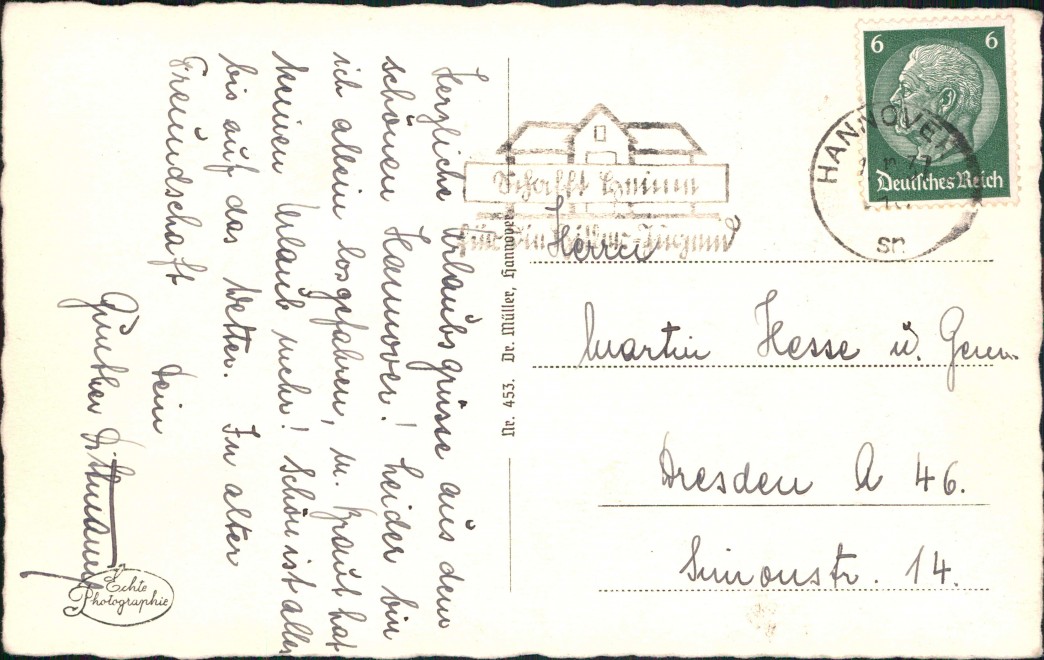 Herzliche Urlaubsgrüsse aus dem
schönen Hannover! Leider bin
ich allein losgefahren, m. Braut hat
keinen Urlaub mehr! Schön ist alles
bis auf das Wetter. In alter
Freundschaft
Dein
Günther
Echte
Photographie
Nr. 453. Dr. Müller, Hannover
Schafft Heime
für die Hitler-Jugend
HANNOVER
6 6
Deutsches Reich
Herrn
Martin Hesse u. Gem.
Dresden A 46.
Simonstr. 14.